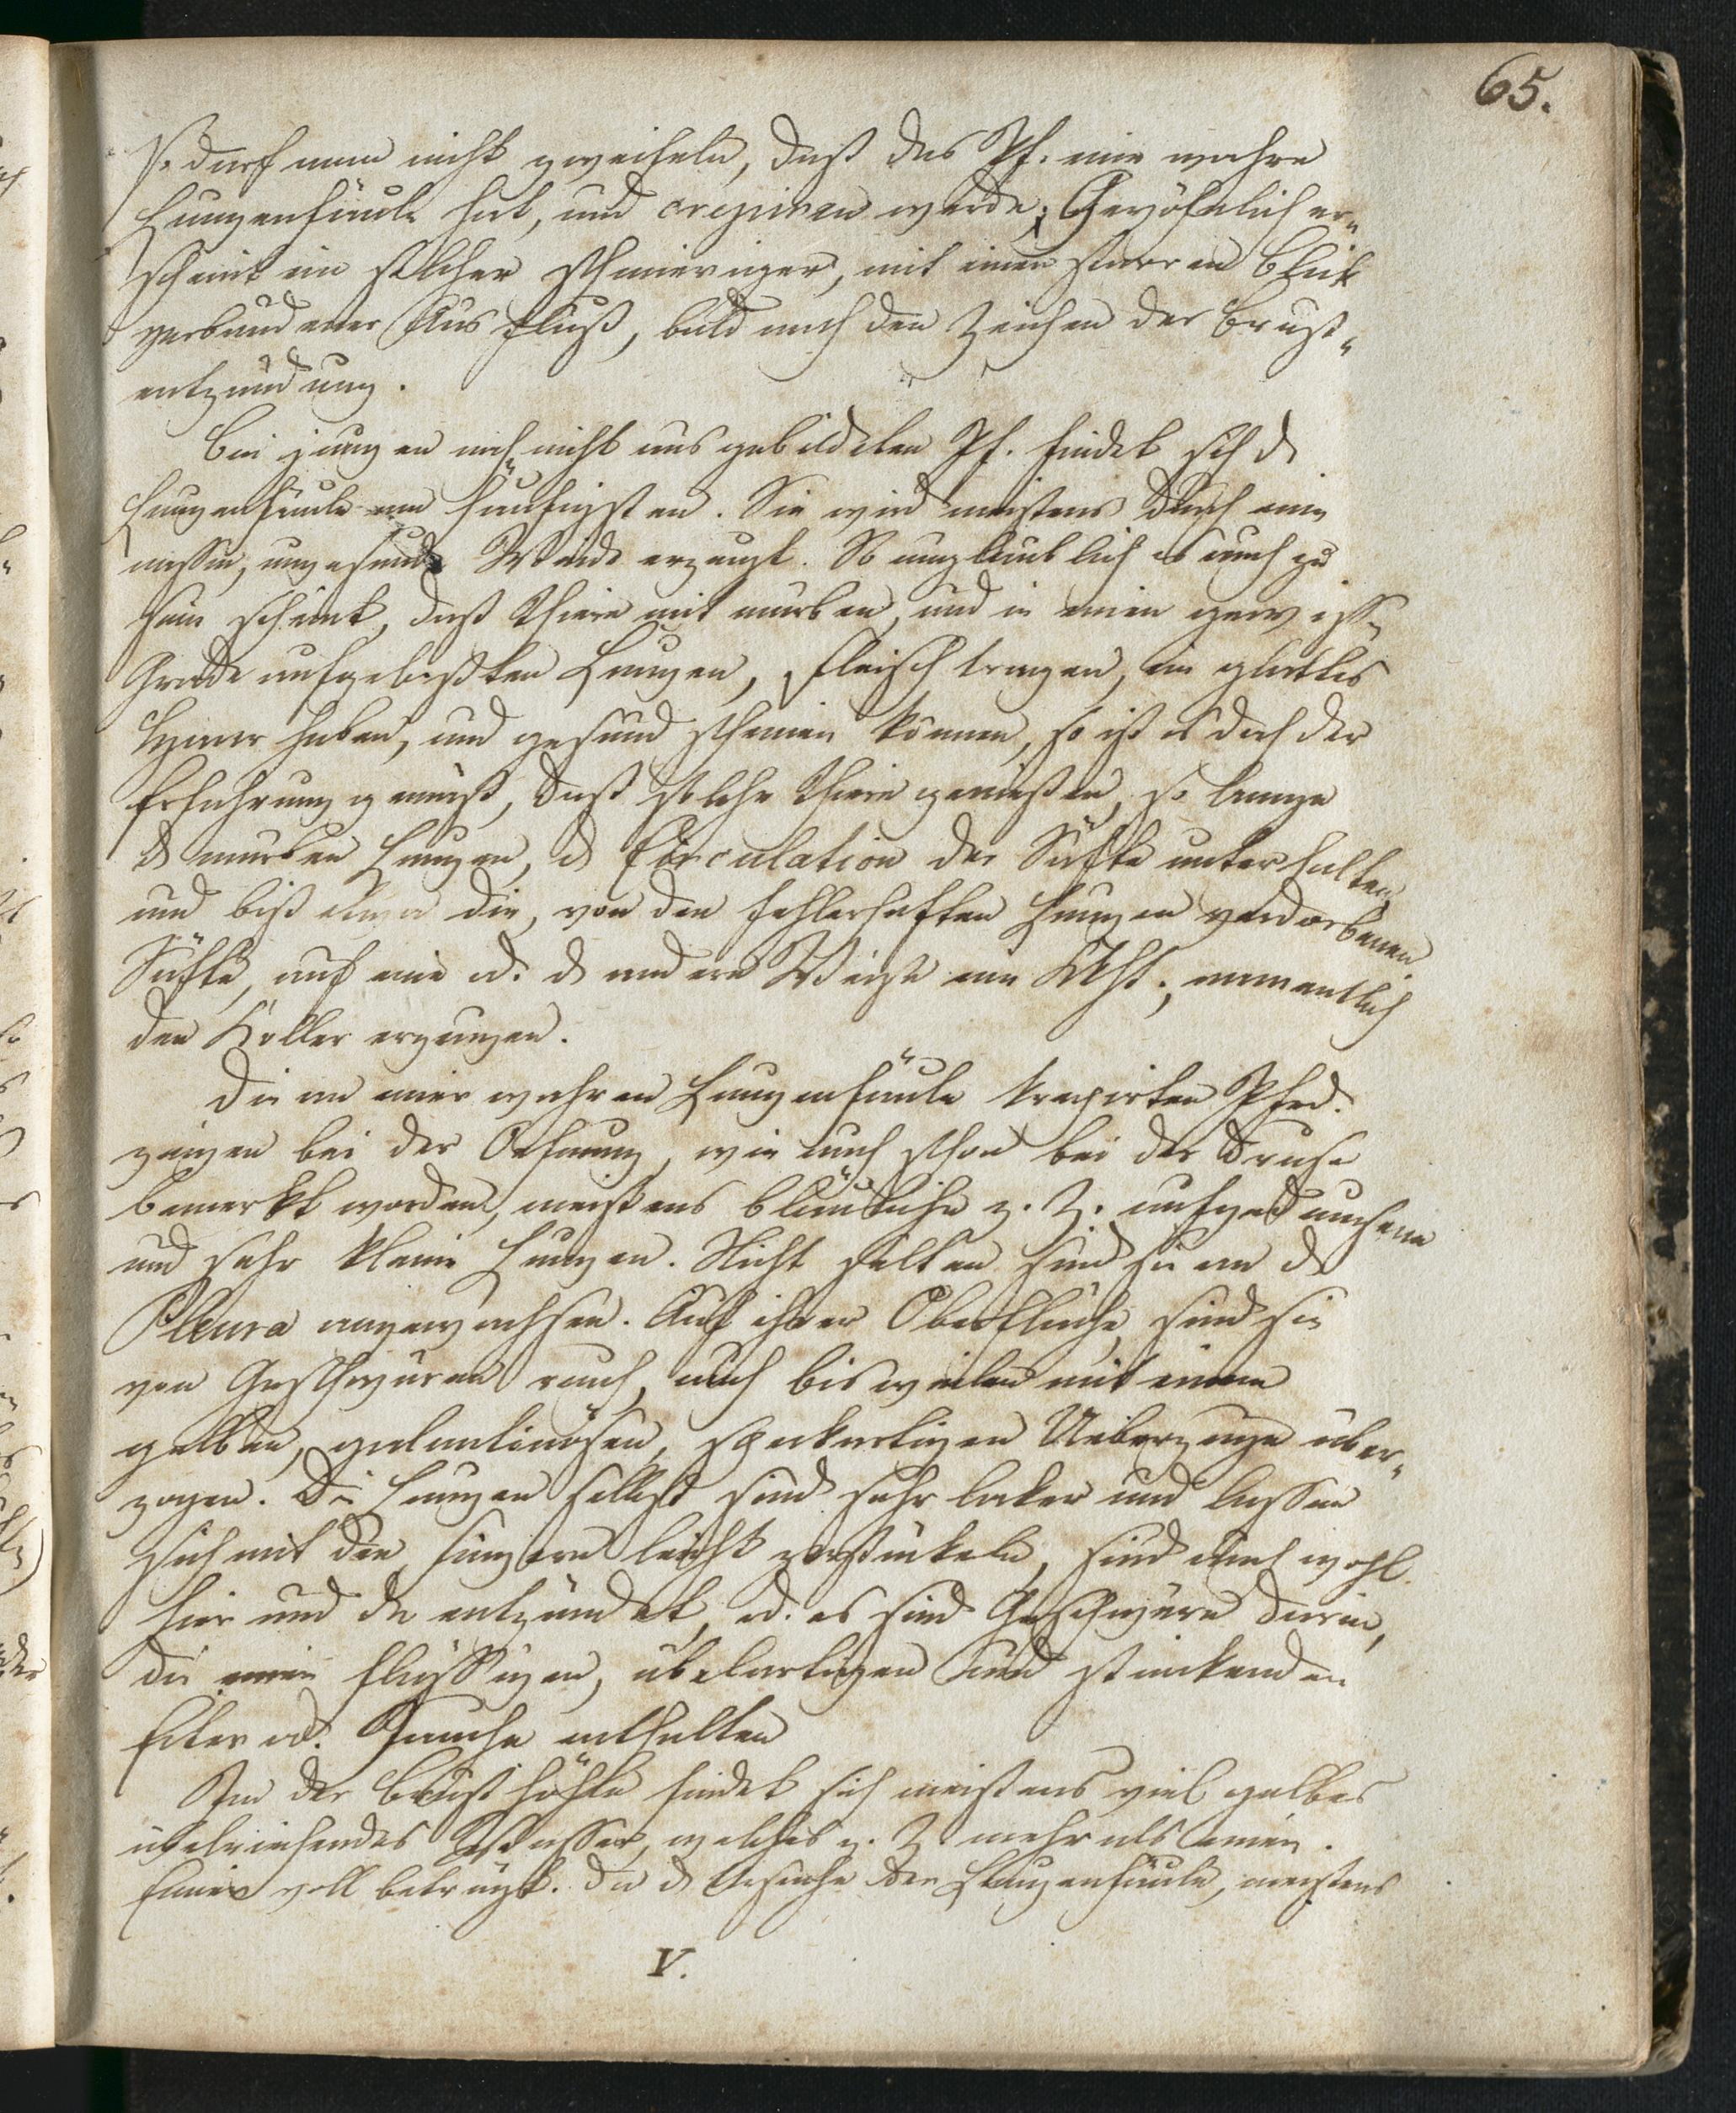 65.
so darf man nicht zweifeln, daß das Pf. eine wahre
Lungenfäule hat, und crepiren werde; Gewöhnlich er„
scheint ein solcher schmieriger, mit einem starren Blick
verbundener Ausfluß, bald nach den Zeichen der Brust„
entzündung.
Bei jungen noch nicht ausgebildeten Pf. findet sich d
Lungenfäule am häufigsten. Sie wird meistens durch eine
ungesunde Weide erzeugt. So unglaublich es auch zu
sein scheint, daß Thiere mit mürben, und in einen gewiss
Grade aufgelößten Lungen, Fleisch tragen, ein glattes
Haar haben, und gesund scheinen können, so ist es doch der
Erfahrung gemäß, daß solche Thiere so lange
d mürben Lungen, d Circulation der Säfte unterhalten,
und biß etwa die, von den fehlerhaften Lungen verdorbenen
Säfte, auf eine od. d andere Weise eine Kkht., namentlich
den Koller erzeugen.
Die an einer wahren Lungenfäule krepirten Pfrd.
zeigen bei der Oefnung, wie auch schon bei der Druse
bemerkt worden, meistens bläuliche z. Th.
und sehr kleine Lungen. Nicht selten sind sie an d
Pleura angewachsen. Auf ihrer Oberfläche sind sie
von Geschwüren rauh, auch bisweilen mit einem
gelben, gelantinösen, speckartigen Ueberzuge über„
zogen. Die Lungen selbst sind sehr locker und lassen
sich mit den Fingern leicht zerstückeln, sind auch wohl
hier und da entzündet, od. es sind Geschwüre darin,
die einen flüssigen, übelartigen und stinkenden
Eiter od. Jauche enthalten
In der Brusthöhle findet sich meistens viel gelbes
übelriechendes Wasser, welches z. Th. mehr als einen
Eimer voll beträgt. Da d Ursache der Lungenfäule, meistens
V.